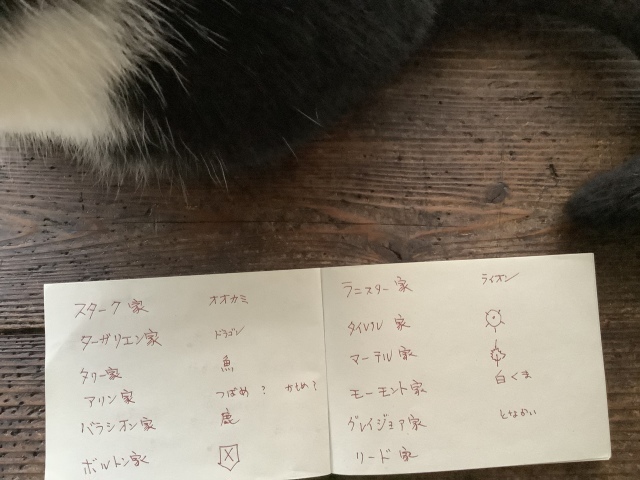 スターク家 オオカミ
ターガリエン家 ドラゴン
タリー家 魚
アリン家 つばめ? かもめ?
バラシオン家 鹿
ボルトン家 X
ラニスター家 ライオン
タイレル家
マーテル家
モーモント家 白くま
グレイジョア家 となかい
リード家